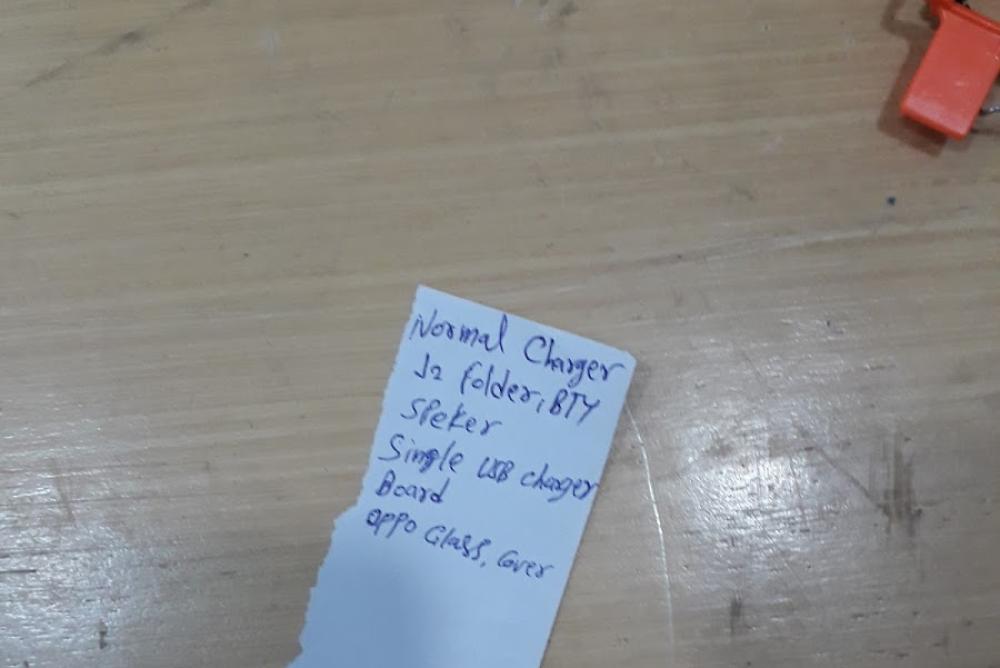 Normal Charger
J2 folder, BTY
SPeKer
Single USB charger
Board
oppo Glass, Cover